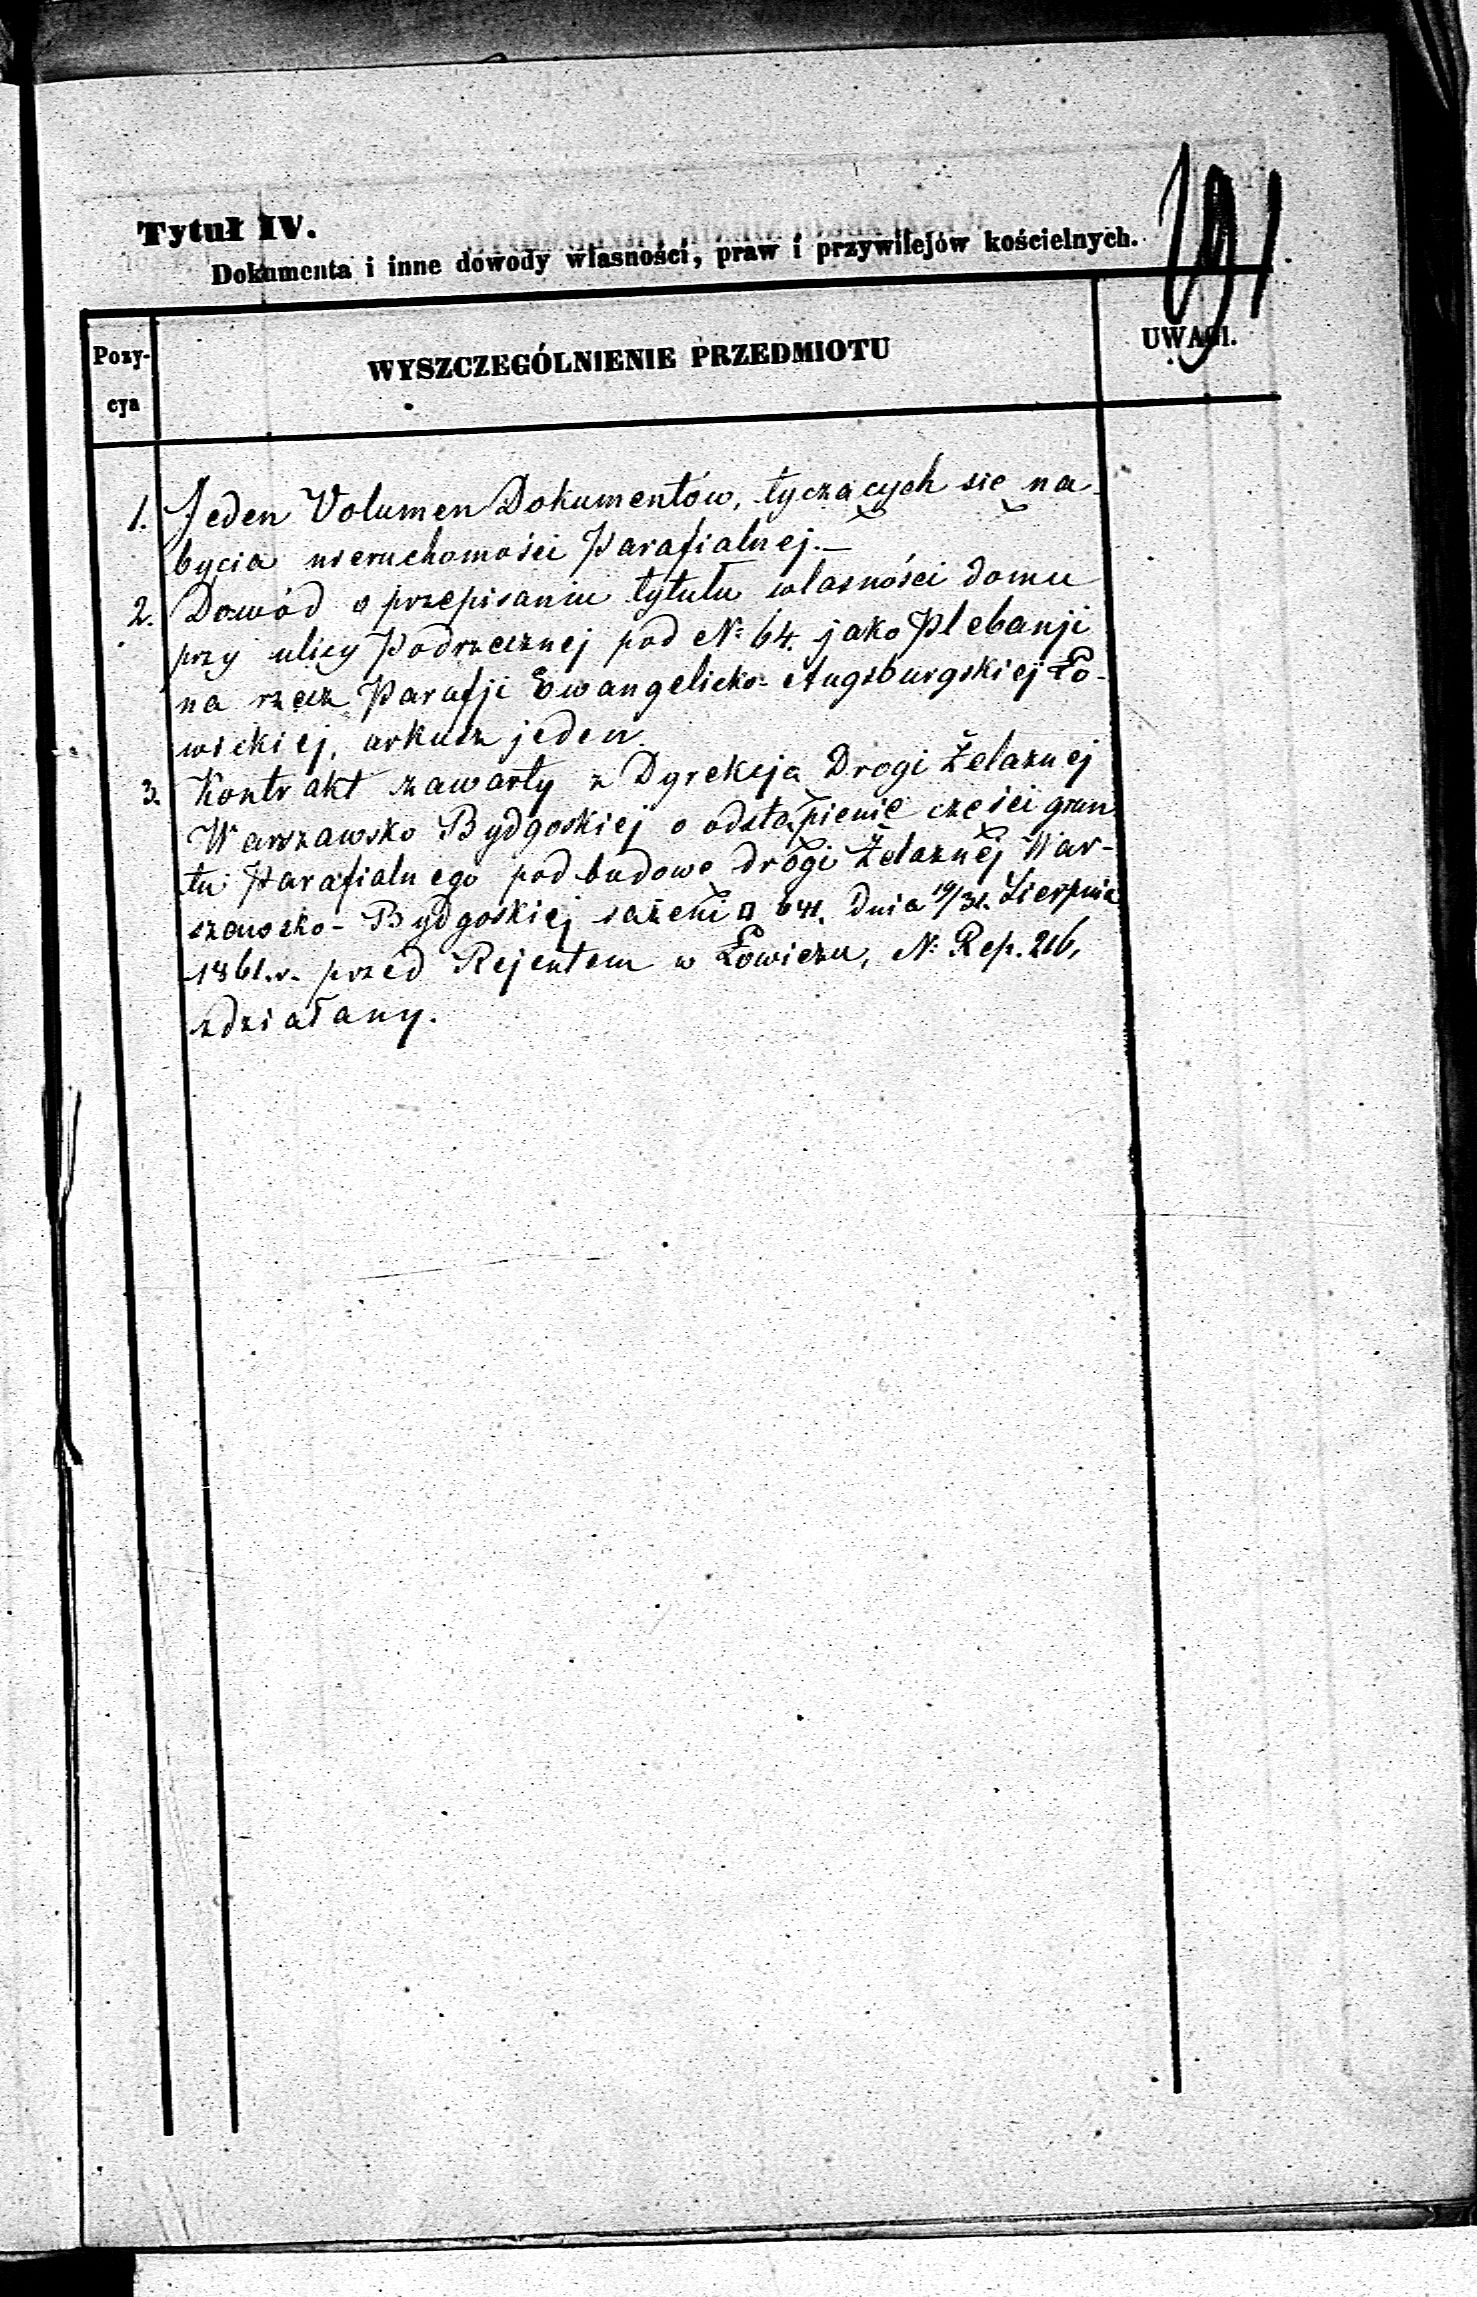 191
Tytuł IV.
Dokumenta i inne dowody własności, praw i przywilejów kościelnych.
Pozy-
cya
WYSZCZEGÓLNIENIE PRZEDMIOTU
UWAGI.
1. Jeden Volumen Dokumentów, tyczących się na-
bycia nieruchomości Parafialnej.—
2. Dowód o przepisaniu tytułu własności domu
przy ulicy Podrzecznej pod N: 64. jako Plebanji
na rzecz Parafji Ewangelicko-Augsburgskiej Ło-
wickiej, arkusz jeden.
3. Kontrakt zawarty z Dyrekcją Drogi Żelaznej
Warszawsko Bydgoskiej o odstąpienie części grun-
tu Parafialnego pod budowę drogi Żelaznej War-
szawsko-Bydgoskiej sażeni □ 64. dnia 19/31. Sierpnia
1861.r. przed Rejentem w Łowiczu, N: Rep. 216,
zdziałany.